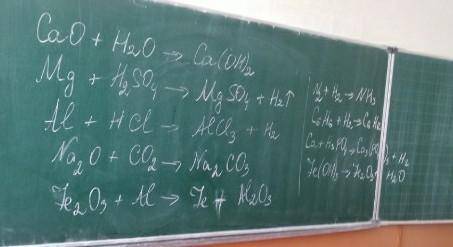 CaO + H2O → Ca(OH)2
Mg + H2SO4 → MgSO4 + H2↑
Al + HCl → AlCl3 + H2
Na2O + CO2 → Na2CO3
Fe2O3 + Al → Fe + Al2O3
N2 + H2 → NH3
+ H2 →
Ca + H3PO4 → Ca3(PO4)2 + H2
Fe(OH)3 → Fe2O3 + H2O